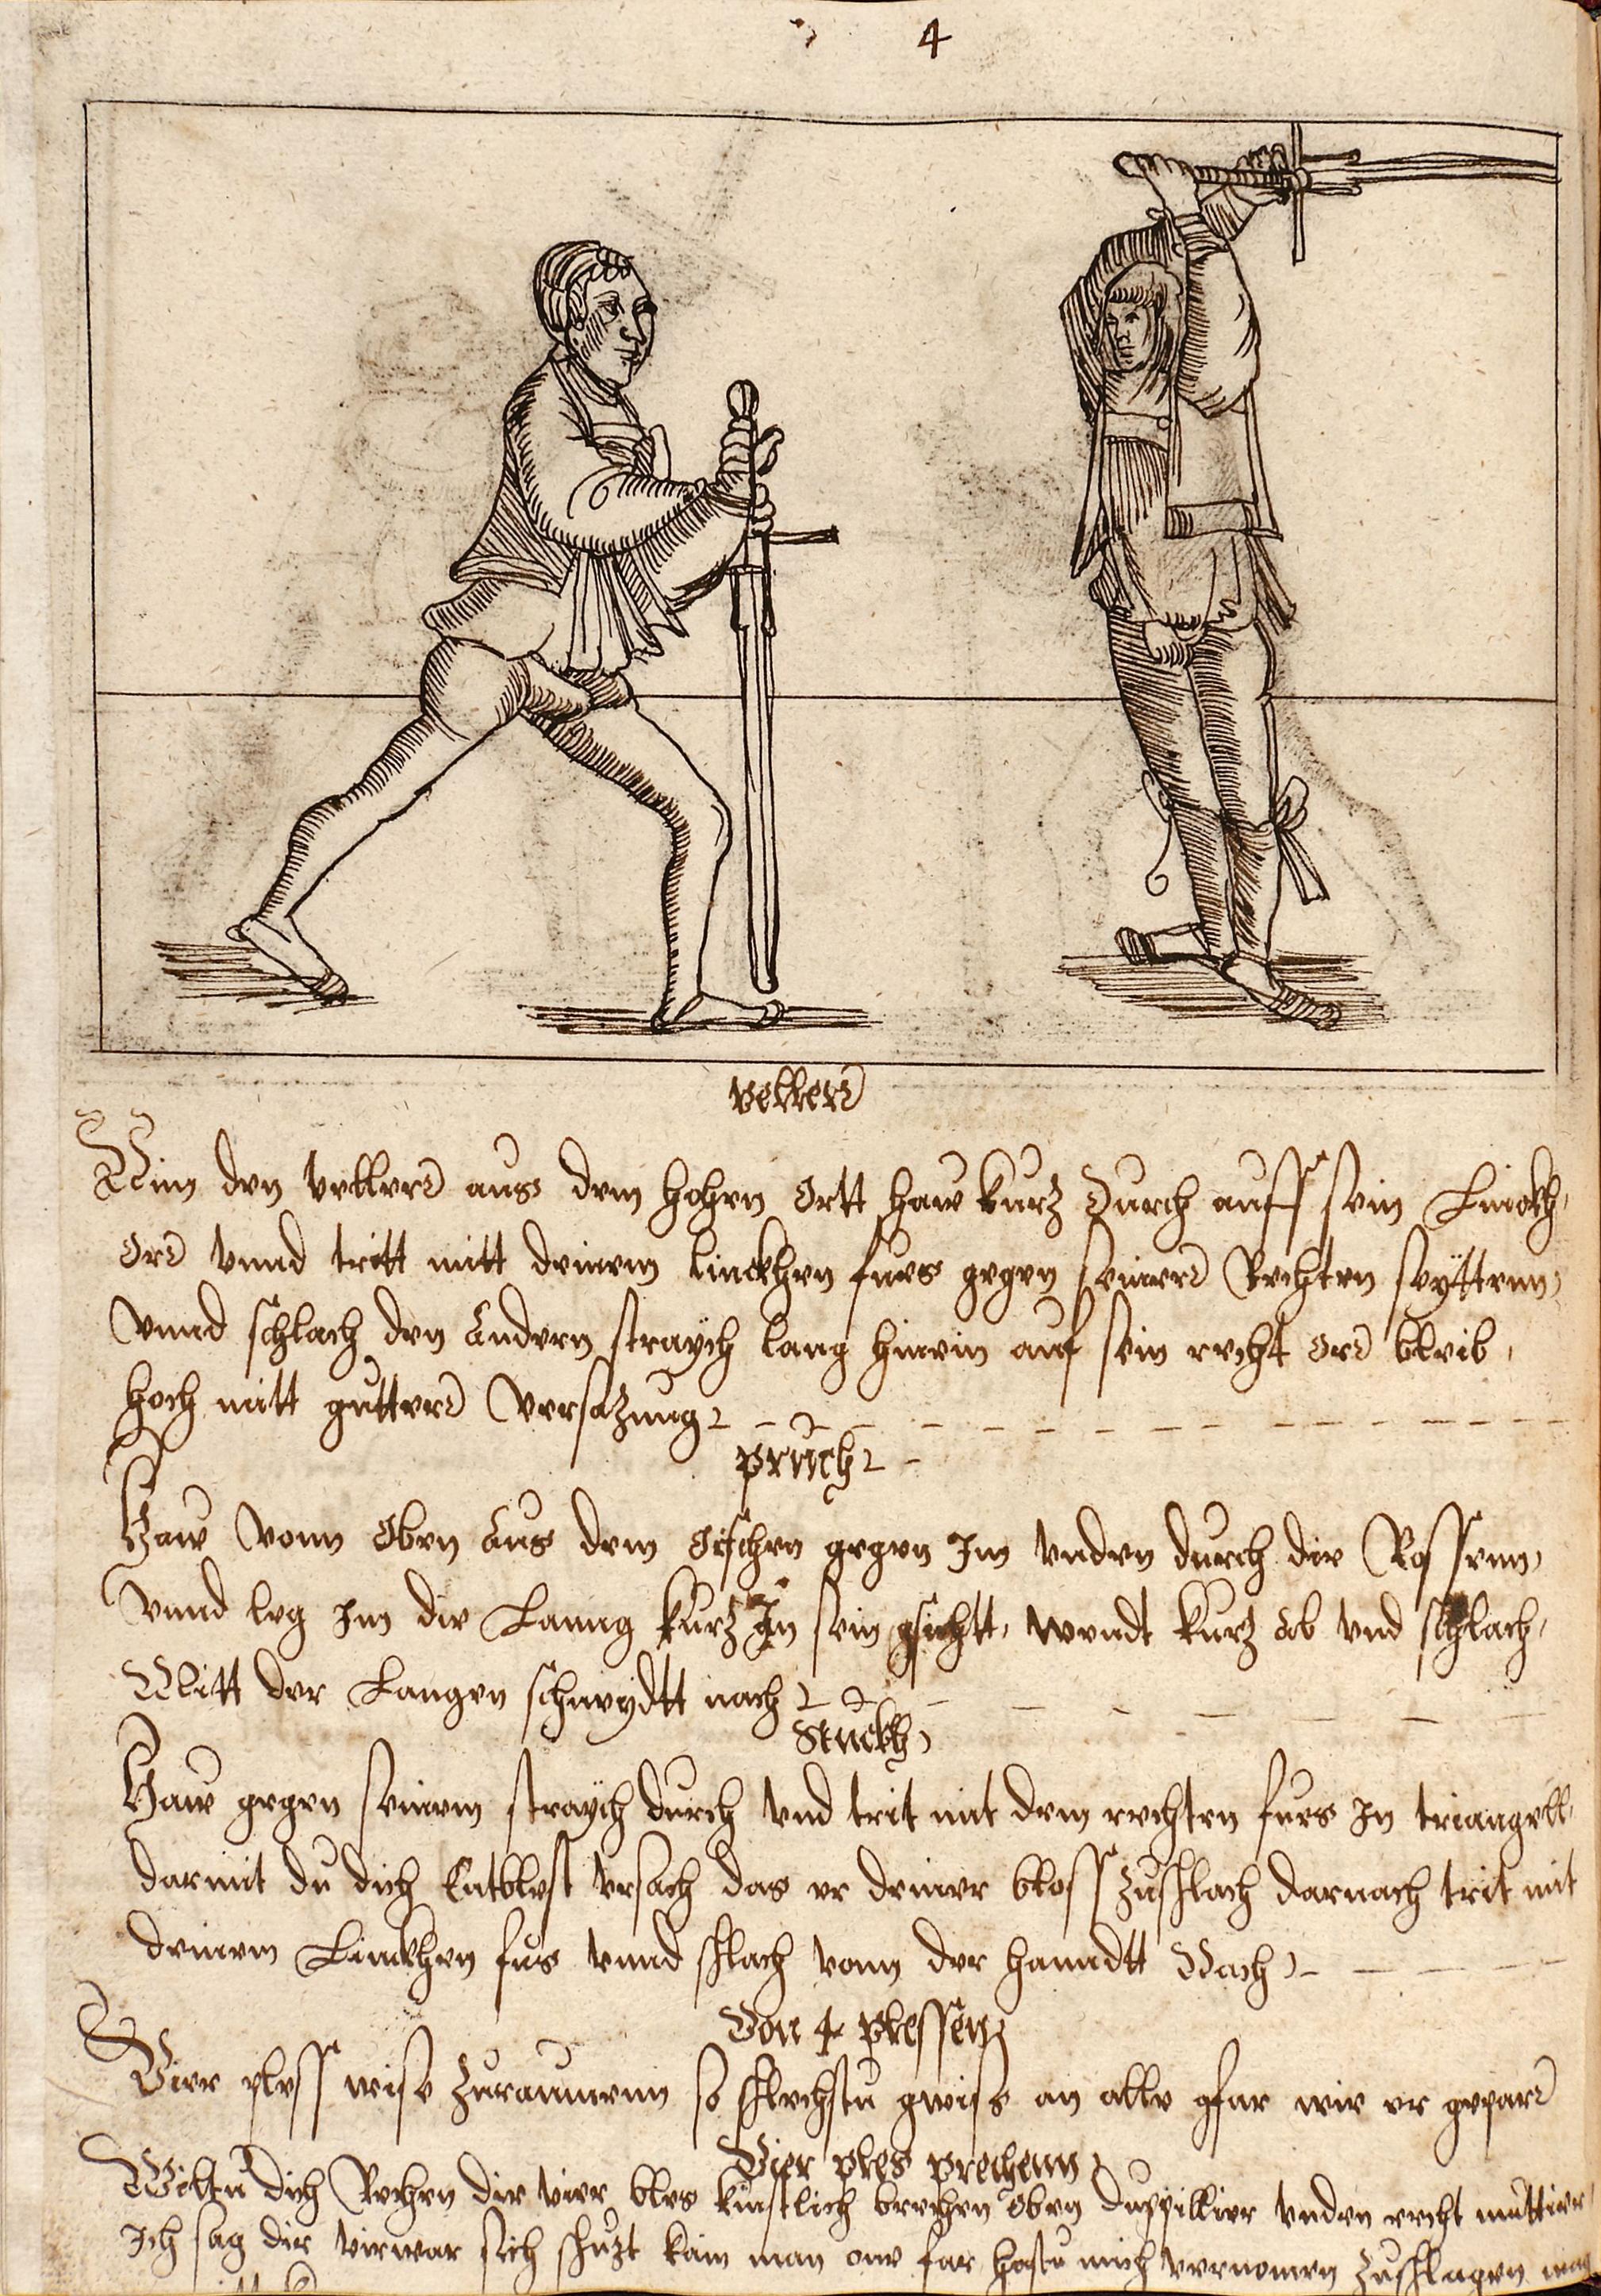 4
vellerr
Nim den vellerr aus dem hohen Ortt haw kurz Durch auff sein Linckh
Orr vnnd tritt mitt deinem linckhen fues gegen seinerr Rechten seyttenn
Vnnd schlach den Andern straych lang hinein auf sein recht Orr bleib
hoch mitt gutterr Versazung
pruch
Haw vonn Oben Aus dem gegen Im vnden durch die Rossenn
Vnnd leg im die Lanng kurz In sein gsichtt, wendt kurz Ab vnd schlach
Mitt der Langen schneydtt nach
Stuckh
Haw gegen seinem straych durch vnd trit mit dem rechten fues In triangell
darmit du dich Entblest vrsach das er deiner bloss zuschlach darnach trit mit
deinem Linckhen fus vnnd schlach vonn der hanndtt Nach
Von 4 plessen
Vier pless wise zuraumenn so schlechstu gwiss an alle gfar wie er geparr
Vier ples prechenn
Wiltu dich Rechen die vier bles kunstlich brechen Oben duppillier vnden recht muttier
Ich sag dir virwar sich schuzt kain man one far hastu mich vernomen zuschlagen mag